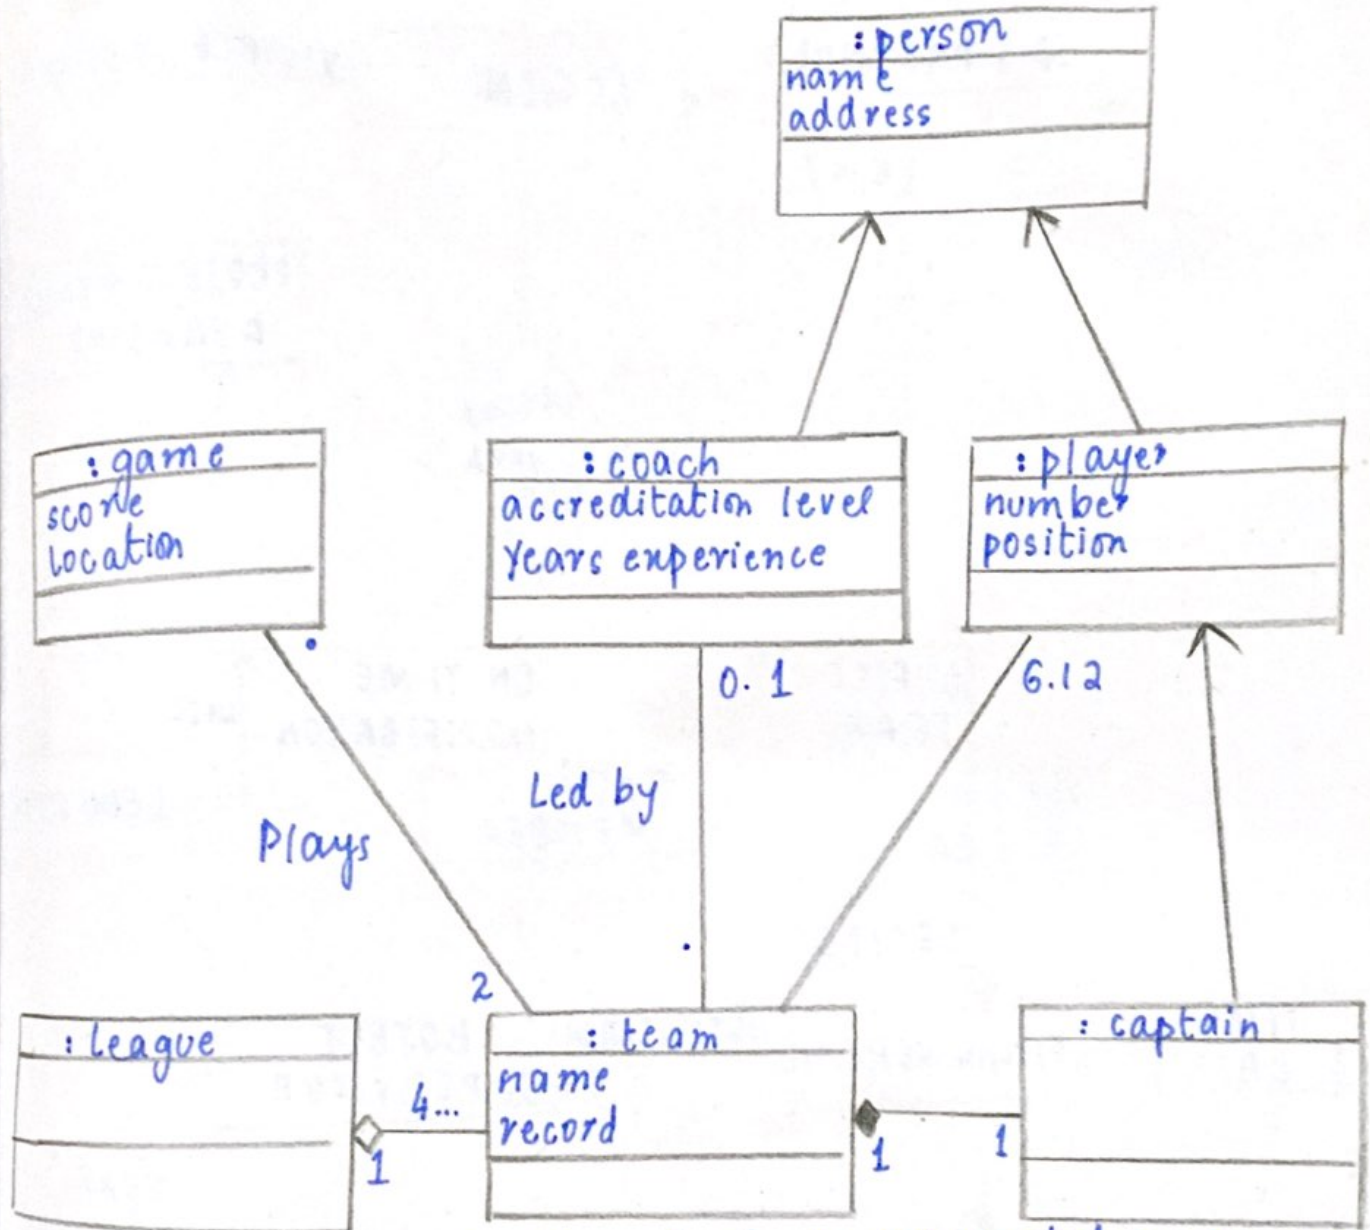 : person
name
address
: game
score
location
: coach
accreditation level
Years experience
: player
number
position
.
0. 1
6.12
Led by
Plays
.
2
: league
4...
1
: team
name
record
1
1
: captain